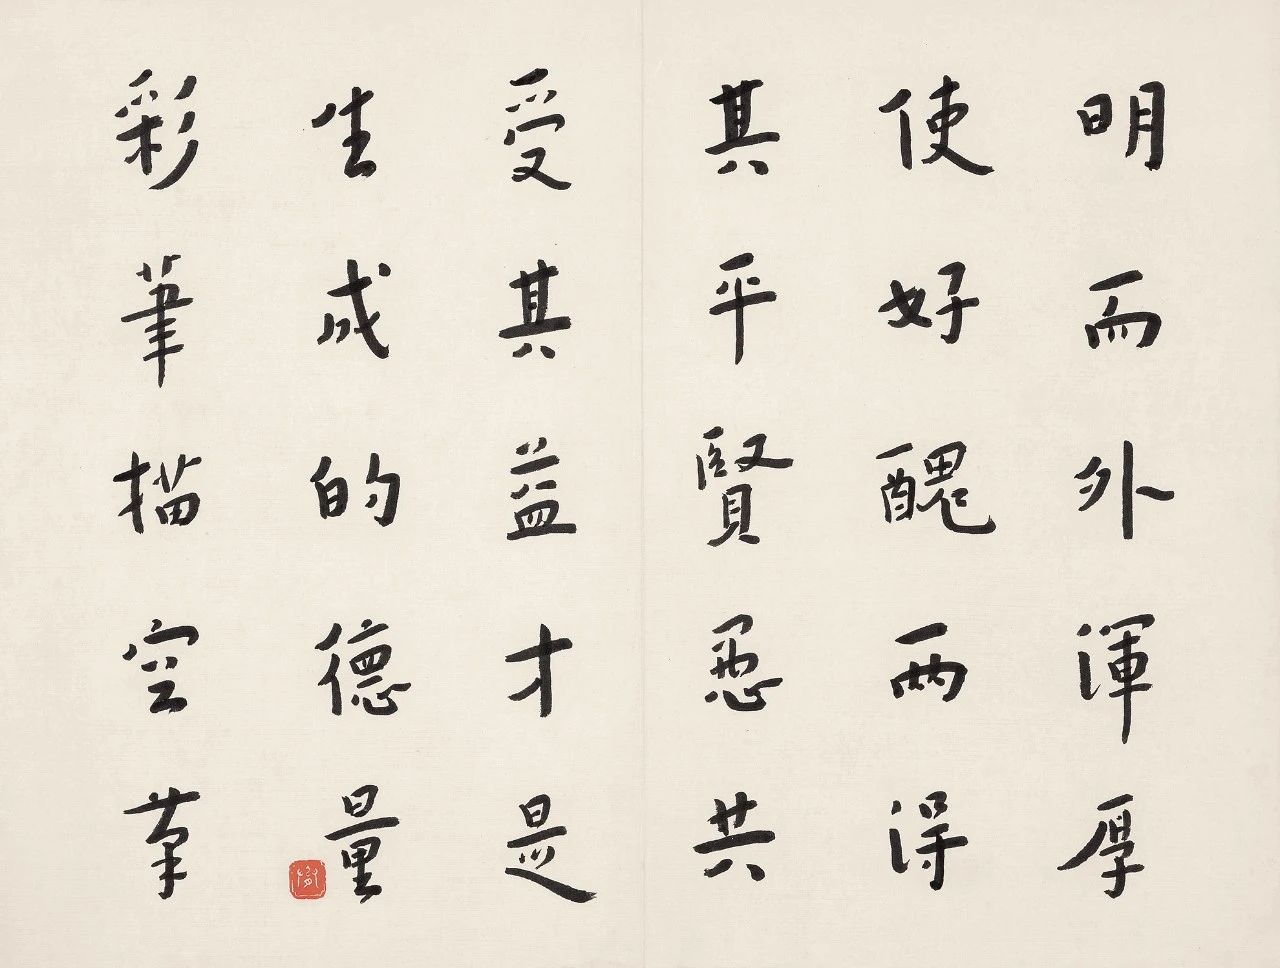 明而外渾厚
使好醜兩得
其平賢愚共
受其益才是
生成的德量
彩筆描空筆